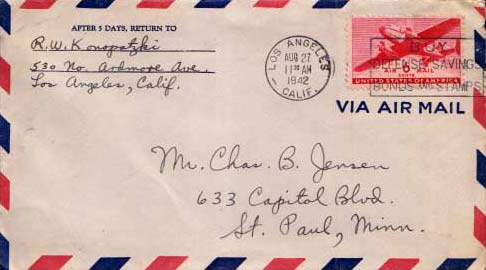 AFTER 5 DAYS, RETURN TO
R.W. Konopatzki
530 No. Ardmore Ave.
Los Angeles, Calif.
LOS ANGELES
AUG 27
11 30 AM
1942
CALIF.
BUY
DEFENSE SAVINGS
BONDS AND STAMPS
AIR 6 MAIL
CENTS
UNITED STATES OF AMERICA
VIA AIR MAIL
Mr. Chas. B. Jensen
633 Capitol Blvd.
St. Paul, Minn.